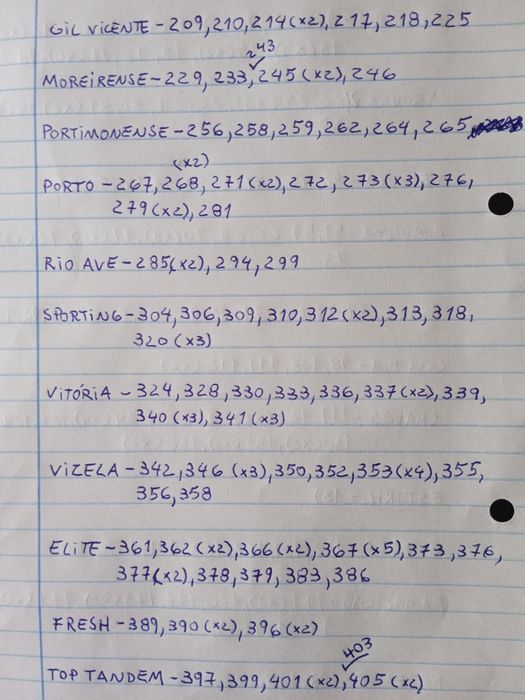 GIL VICENTE - 209, 210, 214 (x2), 217, 218, 225
243
MOREIRENSE - 229, 233, 245 (x2), 246
PORTIMONENSE - 256, 258, 259, 262, 264, 265
(x2)
PORTO - 267, 268, 271 (x2), 272, 273 (x3), 276,
279 (x2), 281
RIO AVE - 285 (x2), 294, 299
SPORTING - 304, 306, 309, 310, 312 (x2), 313, 318,
320 (x3)
VITÓRIA - 324, 328, 330, 333, 336, 337 (x2), 339,
340 (x3), 341 (x3)
VIZELA - 342, 346 (x3), 350, 352, 353 (x4), 355,
356, 358
ELITE - 361, 362 (x2), 366 (x2), 367 (x5), 373, 376,
377 (x2), 378, 379, 383, 386
FRESH - 389, 390 (x2), 396 (x2)
403
TOP TANDEM - 397, 399, 401 (x2), 405 (x2)